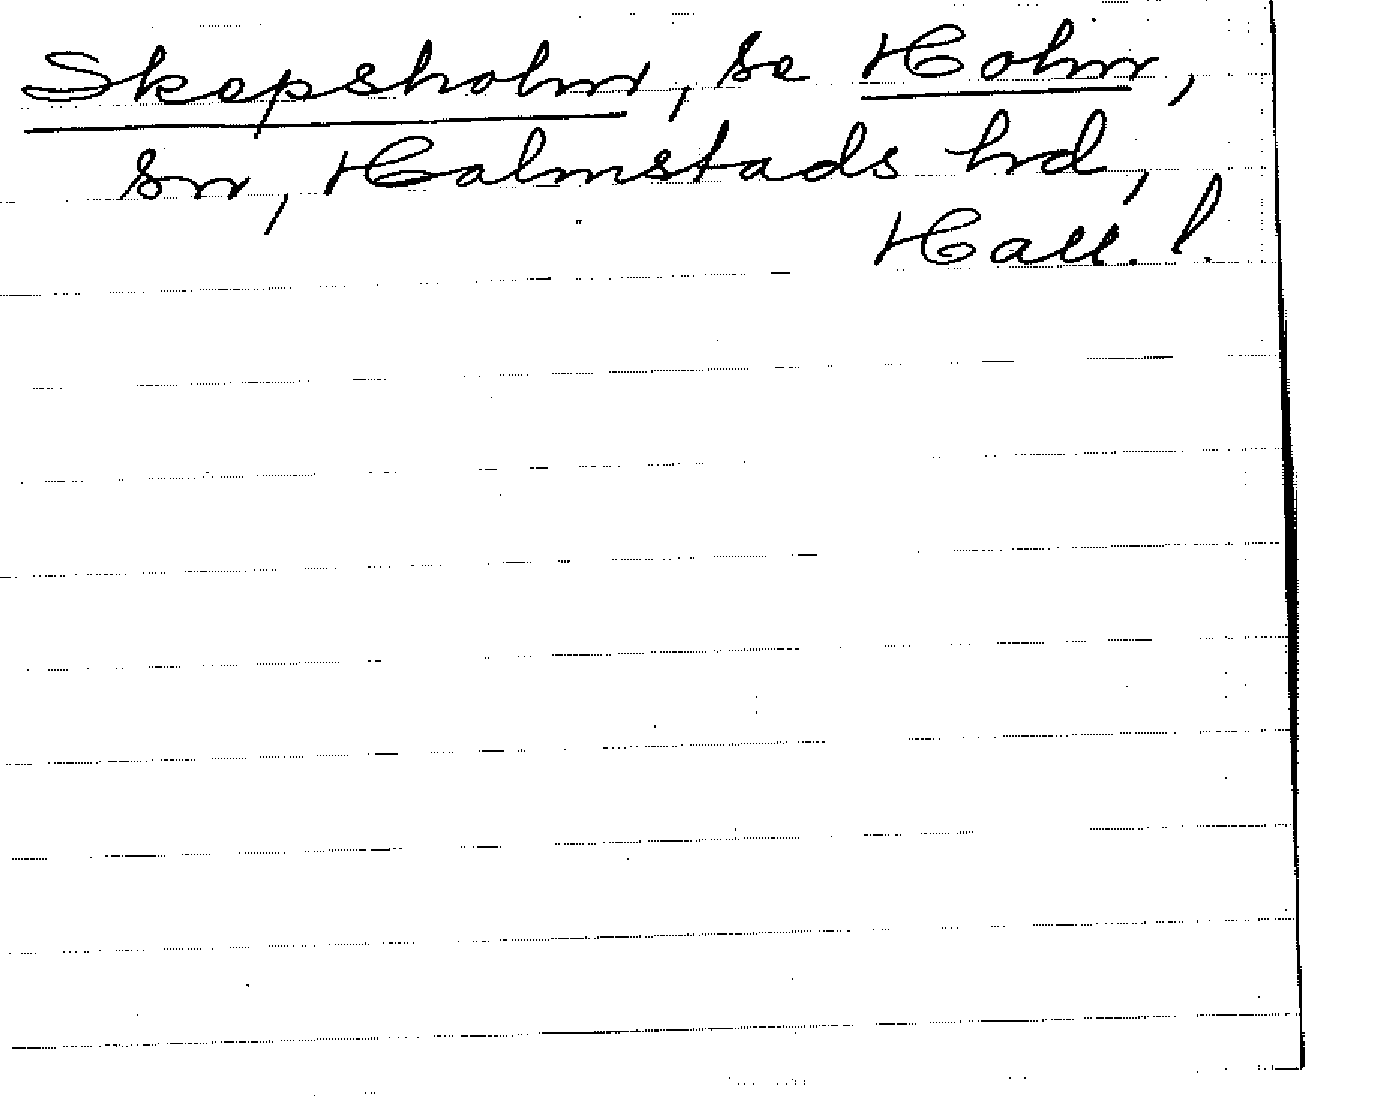 Skepsholm, se Holm,
sn, Halmstads hd,
Hall. l.